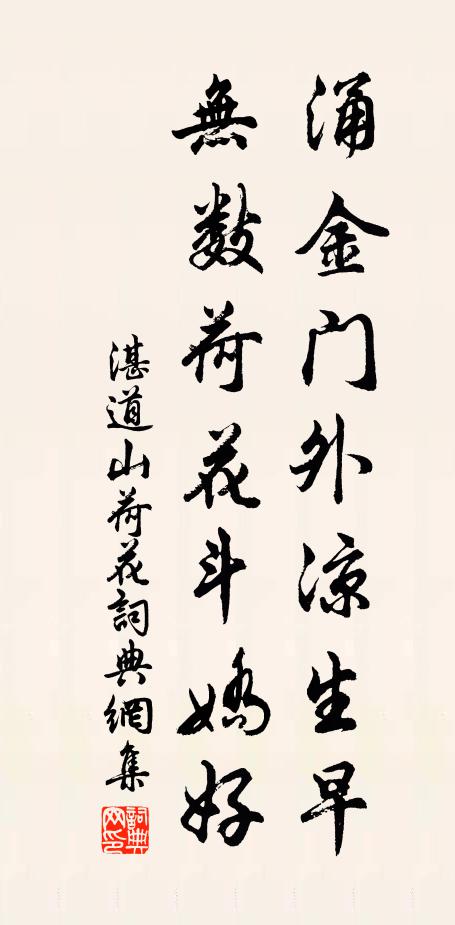 涌金门外凉生早
無数荷花斗嬌好
湛道山荷花詞典網集
詞典網印